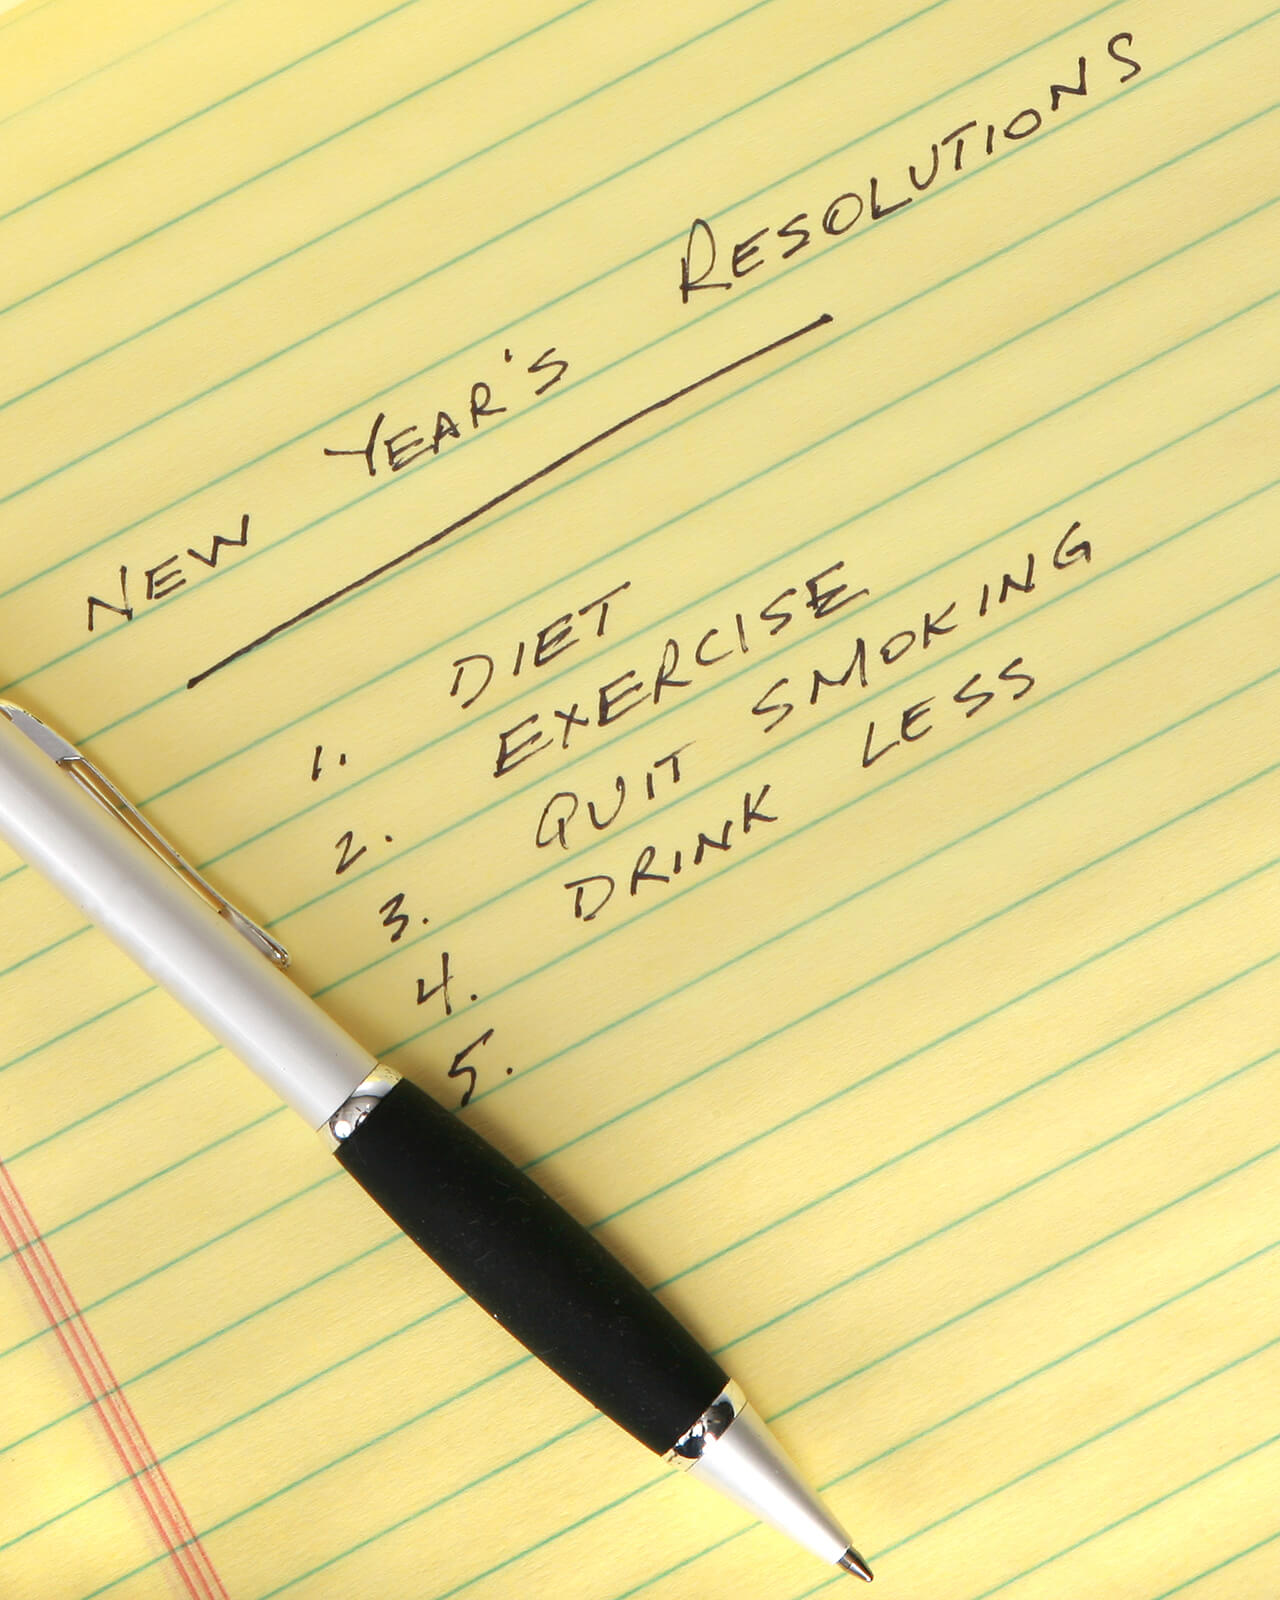 NEW YEAR'S RESOLUTIONS
1. DIET
2. EXERCISE
3. QUIT SMOKING
4. DRINK LESS
5.